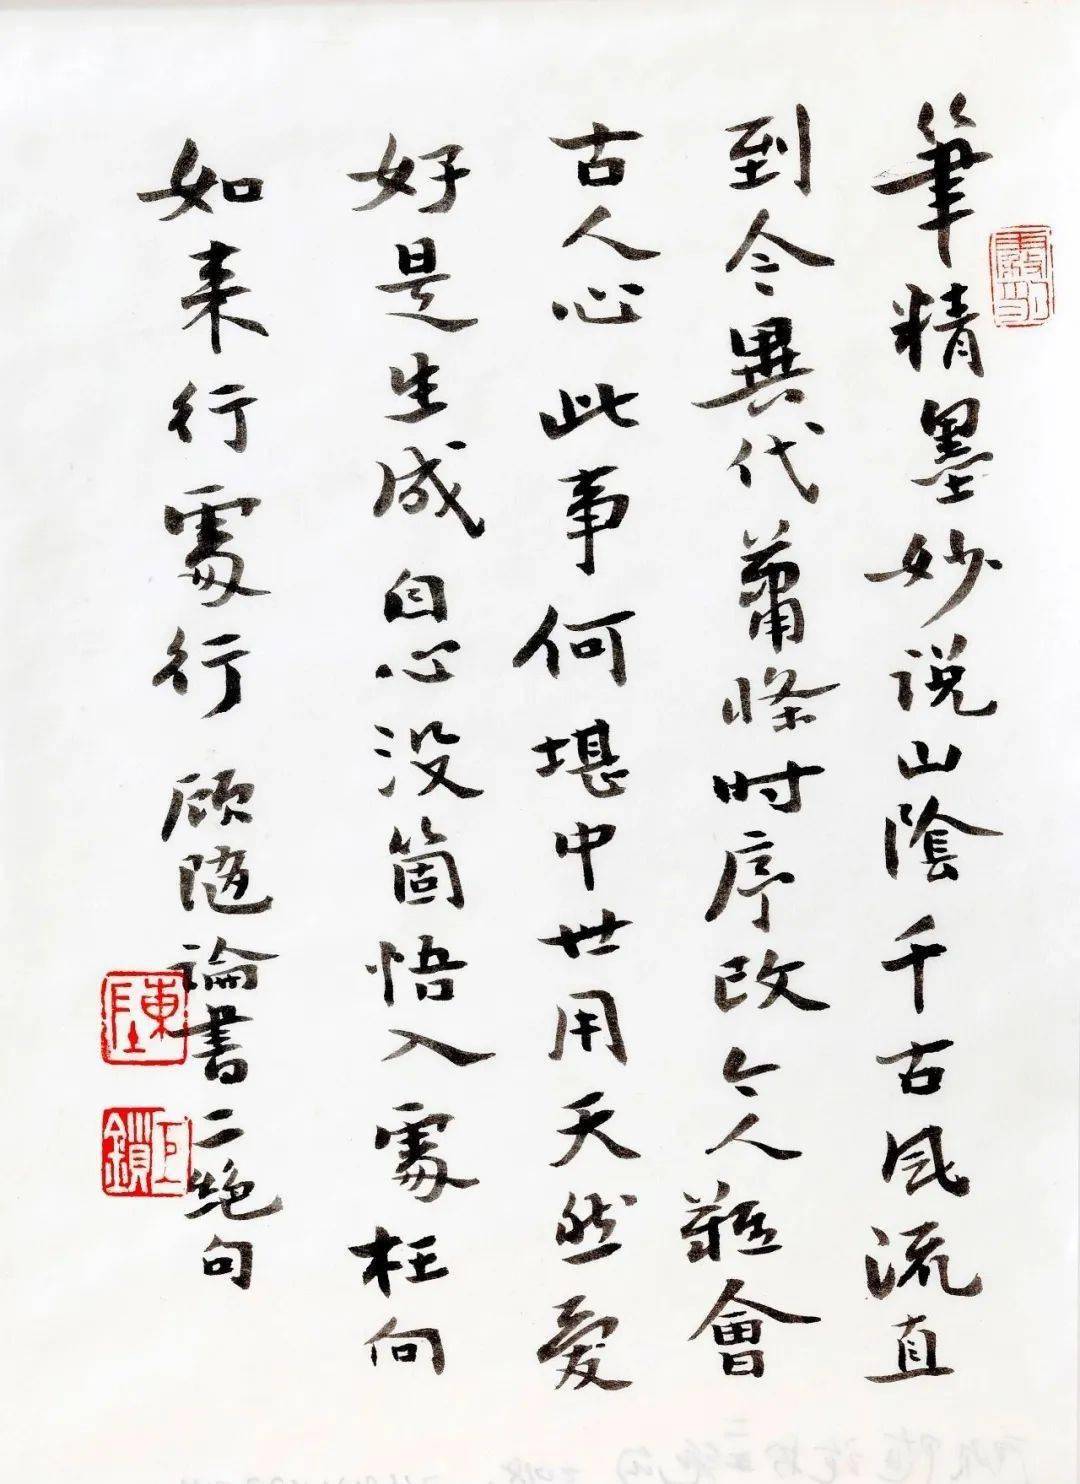 筆精墨妙说山陰千古风流直
到今異代蕭條时序改今人難會
古人心此事何堪中世用天然愛
好是生成自心没箇悟入處枉向
如来行處行 顾随論書二绝句
陳
巨鎖